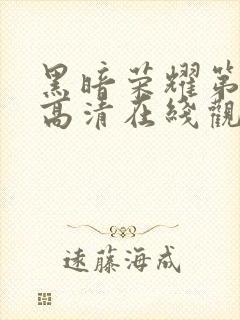 黑暗荣耀第
高清在线觀
遠藤海成